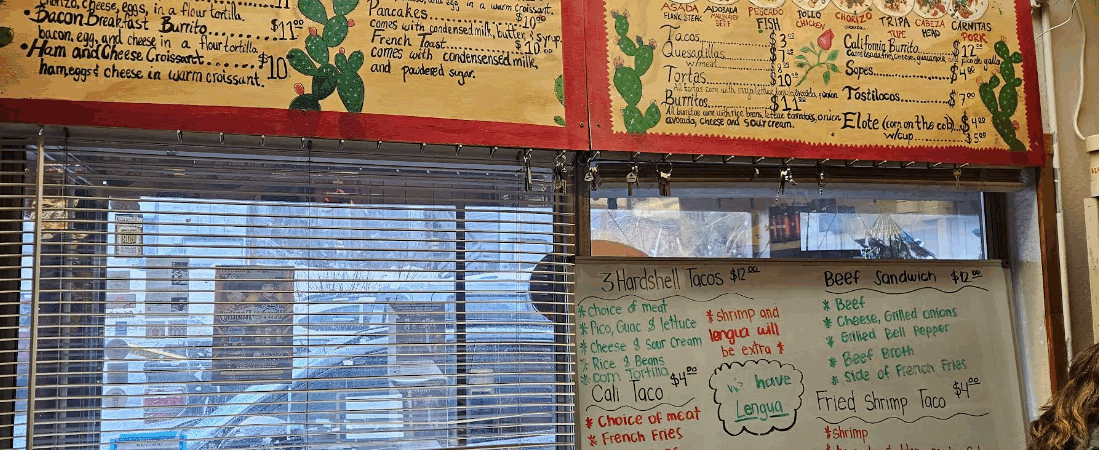 cheese, eggs, in a flour tortilla.
• Bacon Breakfast Burrito........$11.00
bacon, egg, and cheese in a flour tortilla.
• Ham and Cheese Croissant........$10
ham, eggs & cheese in warm croissant.
in a warm croissant.
Pancakes
comes with condensed milk, butter & syrup.
French Toast
comes with condensed milk,
and powdered sugar.
ASADA
FLANK STEAK
ADOBADA
PESCADO
FISH
POLLO
CHICKEN
CHORIZO
TRIPA
TRIPE
CABEZA
HEAD
CARNITAS
PORK
Tacos
Quesadillas
w/meat
Tortas
Burritos........$11
All burritos come with rice, beans, lettuce, tomatoes, onion
avocado, cheese and sour cream.
California Burrito........$12.00
Sopes
Tostilocos........$7.00
Elote (corn on the cob)...$4.00
w/cup........$5.00
3 Hardshell Tacos $12.00
* choice of meat
* Pico, Guac & lettuce
* Cheese & Sour Cream
* Rice & Beans
* corn Tortilla
* shrimp and
lengua will
be extra *
Cali Taco $4.00
* Choice of meat
* French Fries
We have
Lengua
Beef Sandwich $12.00
* Beef
* Cheese, Grilled onions
* Grilled Bell Pepper
* Beef Broth
* Side of French Fries
Fried Shrimp Taco $4.00
* shrimp